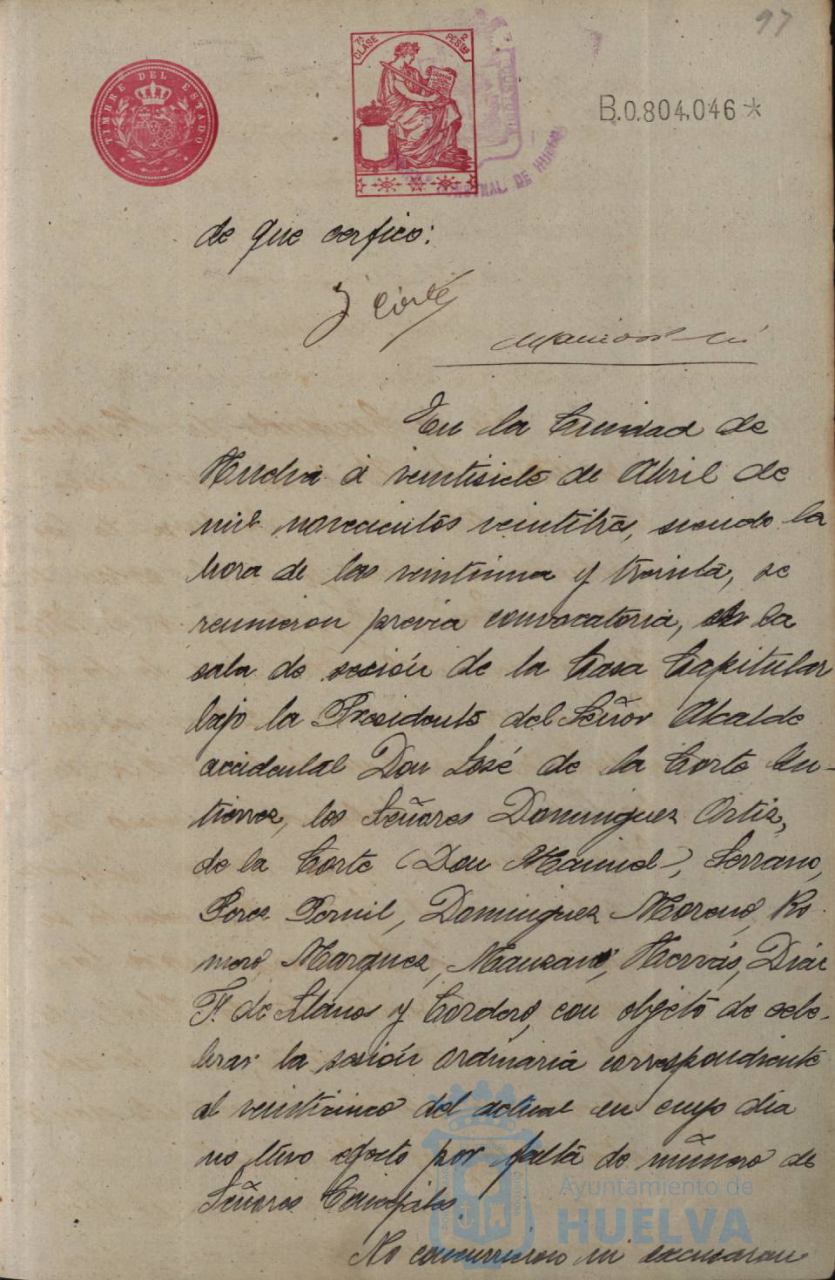 97
TIMBRE DEL ESTADO
7ª CLASE 2 PESTAS
B.0.804,046*
de que cerfico:
J Corte
En la Ciudad de
Huelva á veintisiete de Abril de
mil novecientos veintitres, siendo la
hora de las veintiuna y treinta, se
reunieron previa convocatoria, en la
sala de sesión de la Casa Capitular
bajo la Presidente del Señor Alcalde
accidental Don José de la Corte Gu-
tierrez, los Señores Dominguez Ortiz,
de la Corte (Don Manuel), Serrano,
Perez Pernil, Dominguez Moreno, Ro-
mero, Marquez, Manzano, Hervás, Diáz
F. de Llanos y Cordero, con objeto de cele-
brar la sesión ordinaria correspondiente
al veinticinco del actual en cuyo día
no tuvo efecto por falta de número de
Señores Concejales.
No concurrieron ni excusaron
Ayuntamiento de
HUELVA